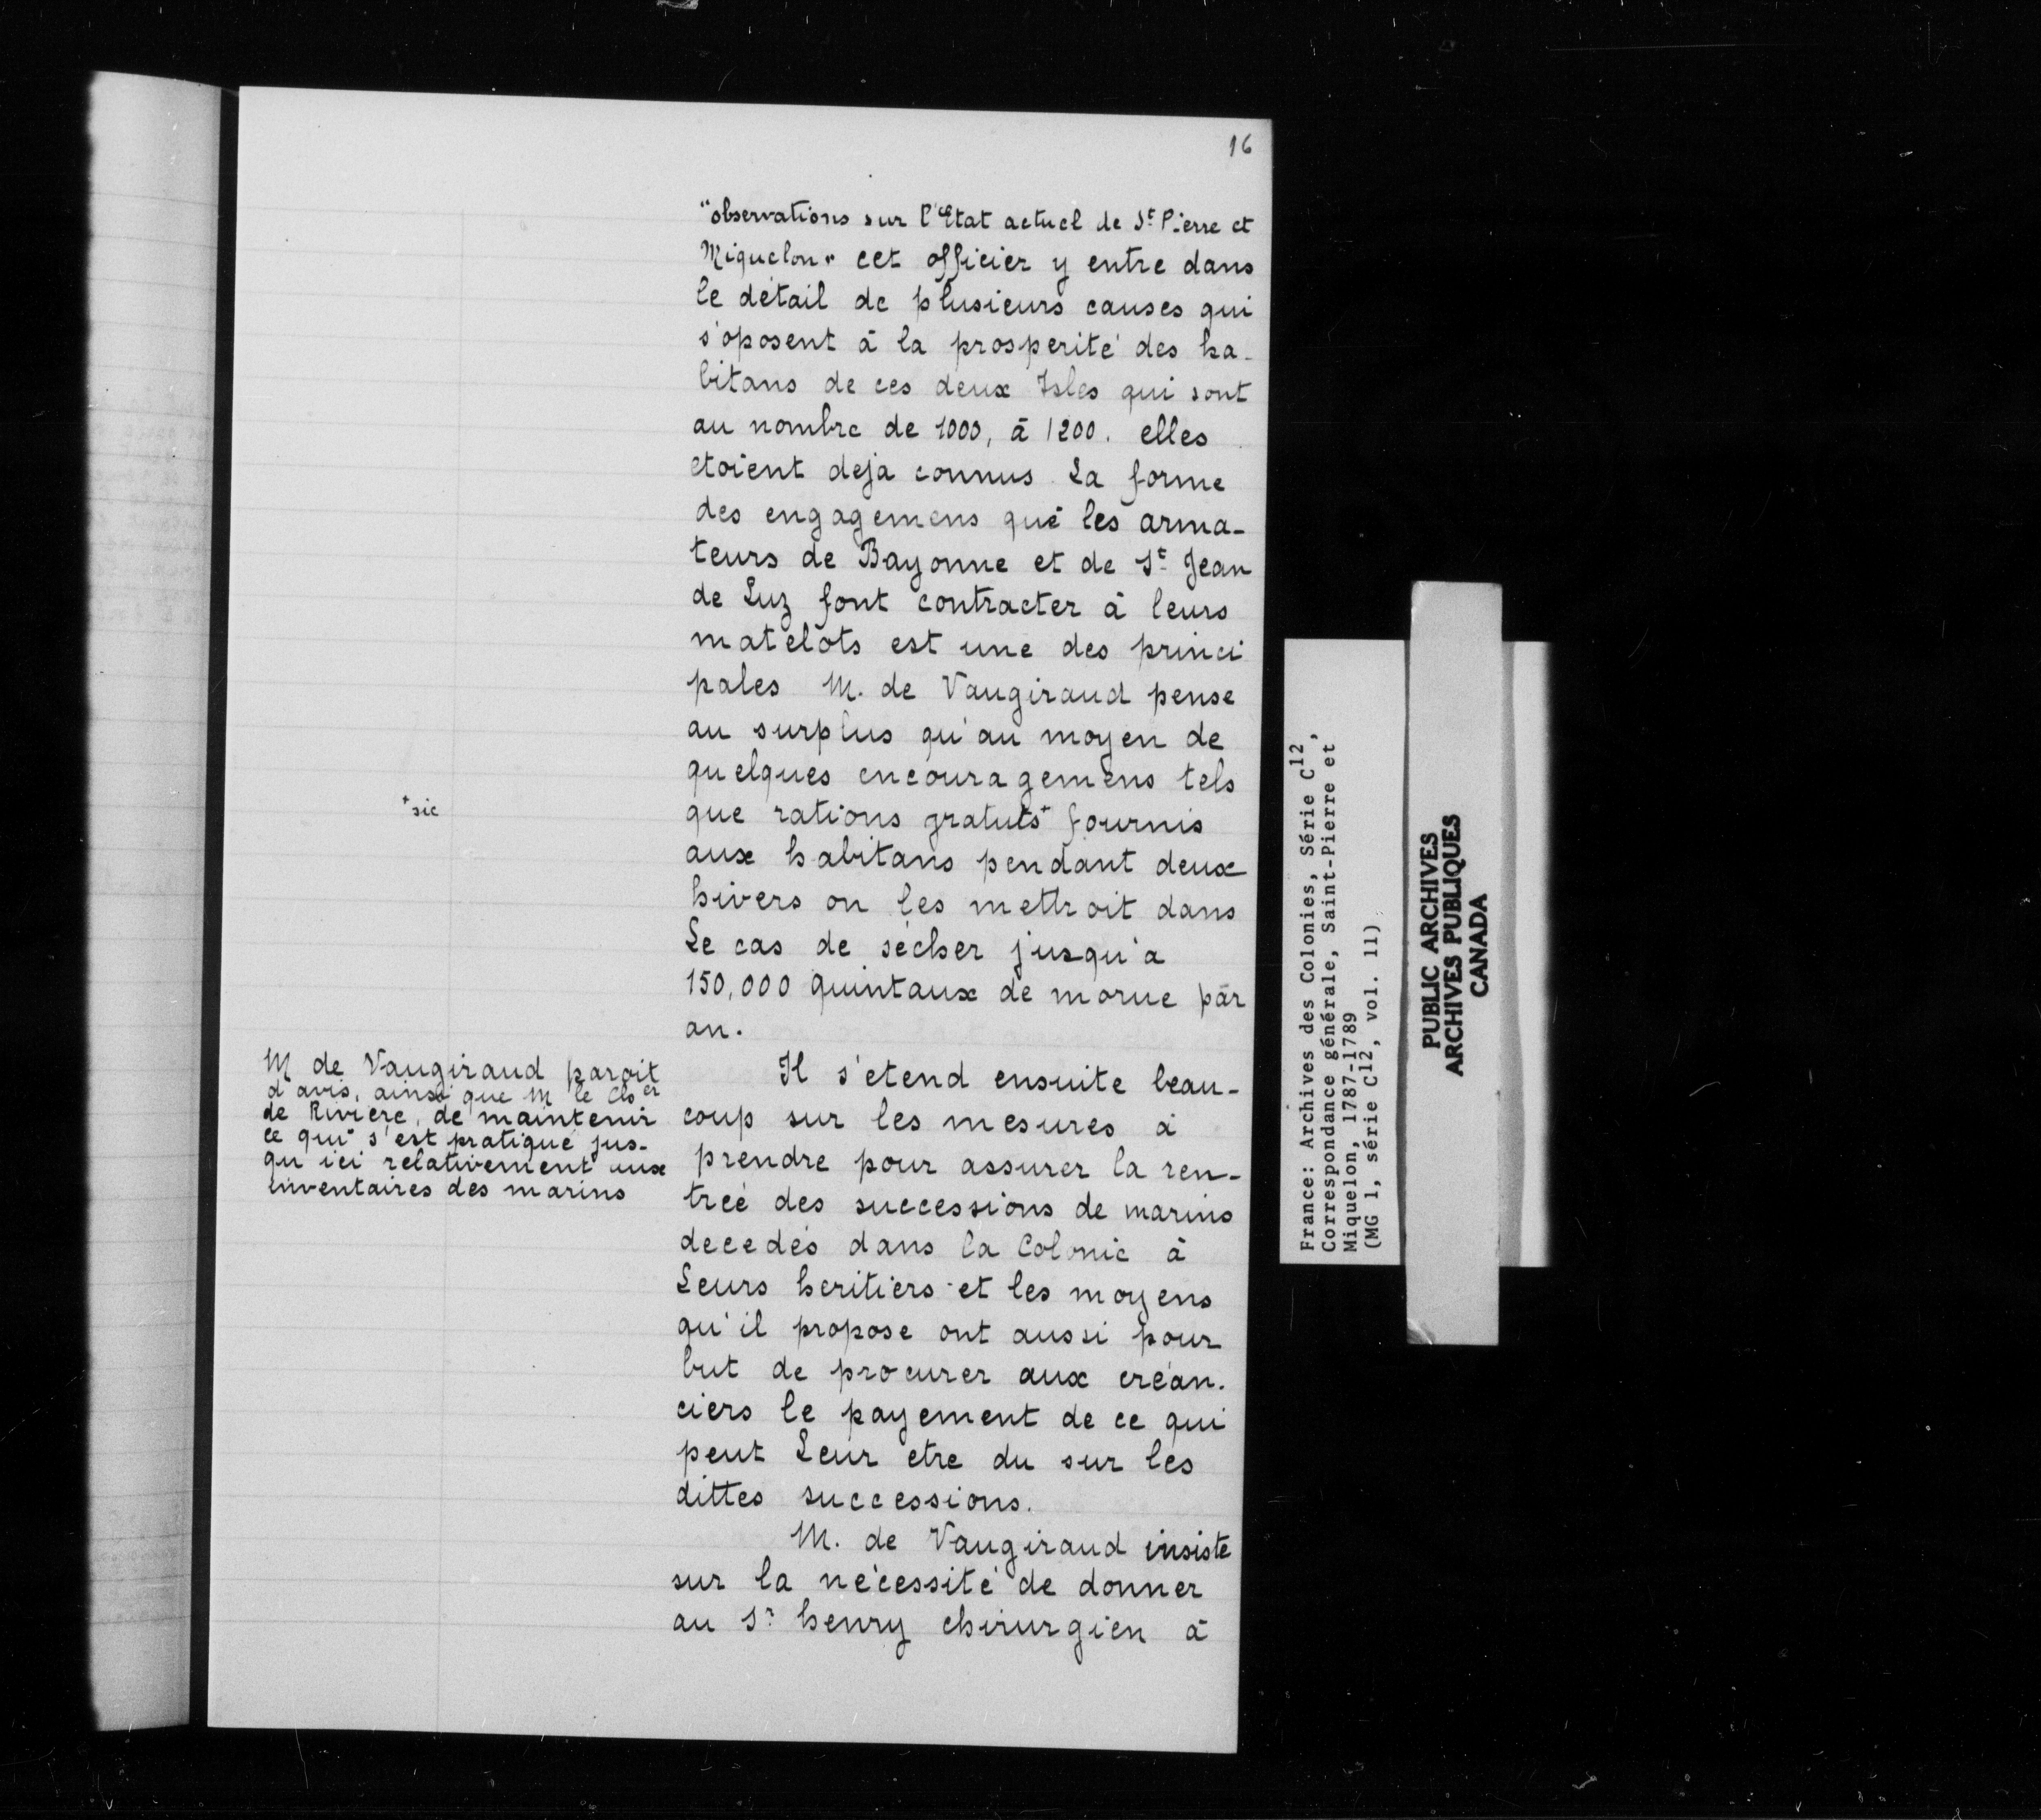 16
"observations sur l'Etat actuel de St Pierre et
Miquelon" cet officier y entre dans
le détail de plusieurs causes qui
s'oposent à la prosperité des ha-
bitans de ces deux Isles qui sont
au nombre de 1000, à 1200. elles
etoient deja connus La forme
des engagemens que les arma-
teurs de Bayonne et de St Jean
de Luz font contracter à leurs
matelots est une des princi
pales M. de Vaugiraud pense
au surplus qu'au moyen de
quelques encouragemens tels
que rations gratuts+ fournis
+sic
aux habitans pendant deux
hivers on les mettroit dans
Le cas de sécher jusqu'a
150,000 quintaux de morue par
an.
M de Vaugiraud paroit
d'avis, ainsi que M le Cher
de Riviere, de maintenir
ce qui s'est pratiqué jus-
qu'ici relativement aux
inventaires des marins
Il s'etend ensuite beau-
coup sur les mesures à
prendre pour assurer la ren-
treé des successions de marins
decedés dans la Colonie à
Leurs heritiers et les moyens
qu'il propose ont aussi pour
but de procurer aux créan-
ciers le payement de ce qui
peut Leur etre du sur les
dittes successions.
M. de Vaugiraud insiste
sur la nécessité de donner
au Sr henry chirurgien à
France: Archives des Colonies, Série C12,
Correspondance générale, Saint-Pierre et
Miquelon, 1787-1789
(MG 1, série C12, vol. 11)
PUBLIC ARCHIVES
ARCHIVES PUBLIQUES
CANADA